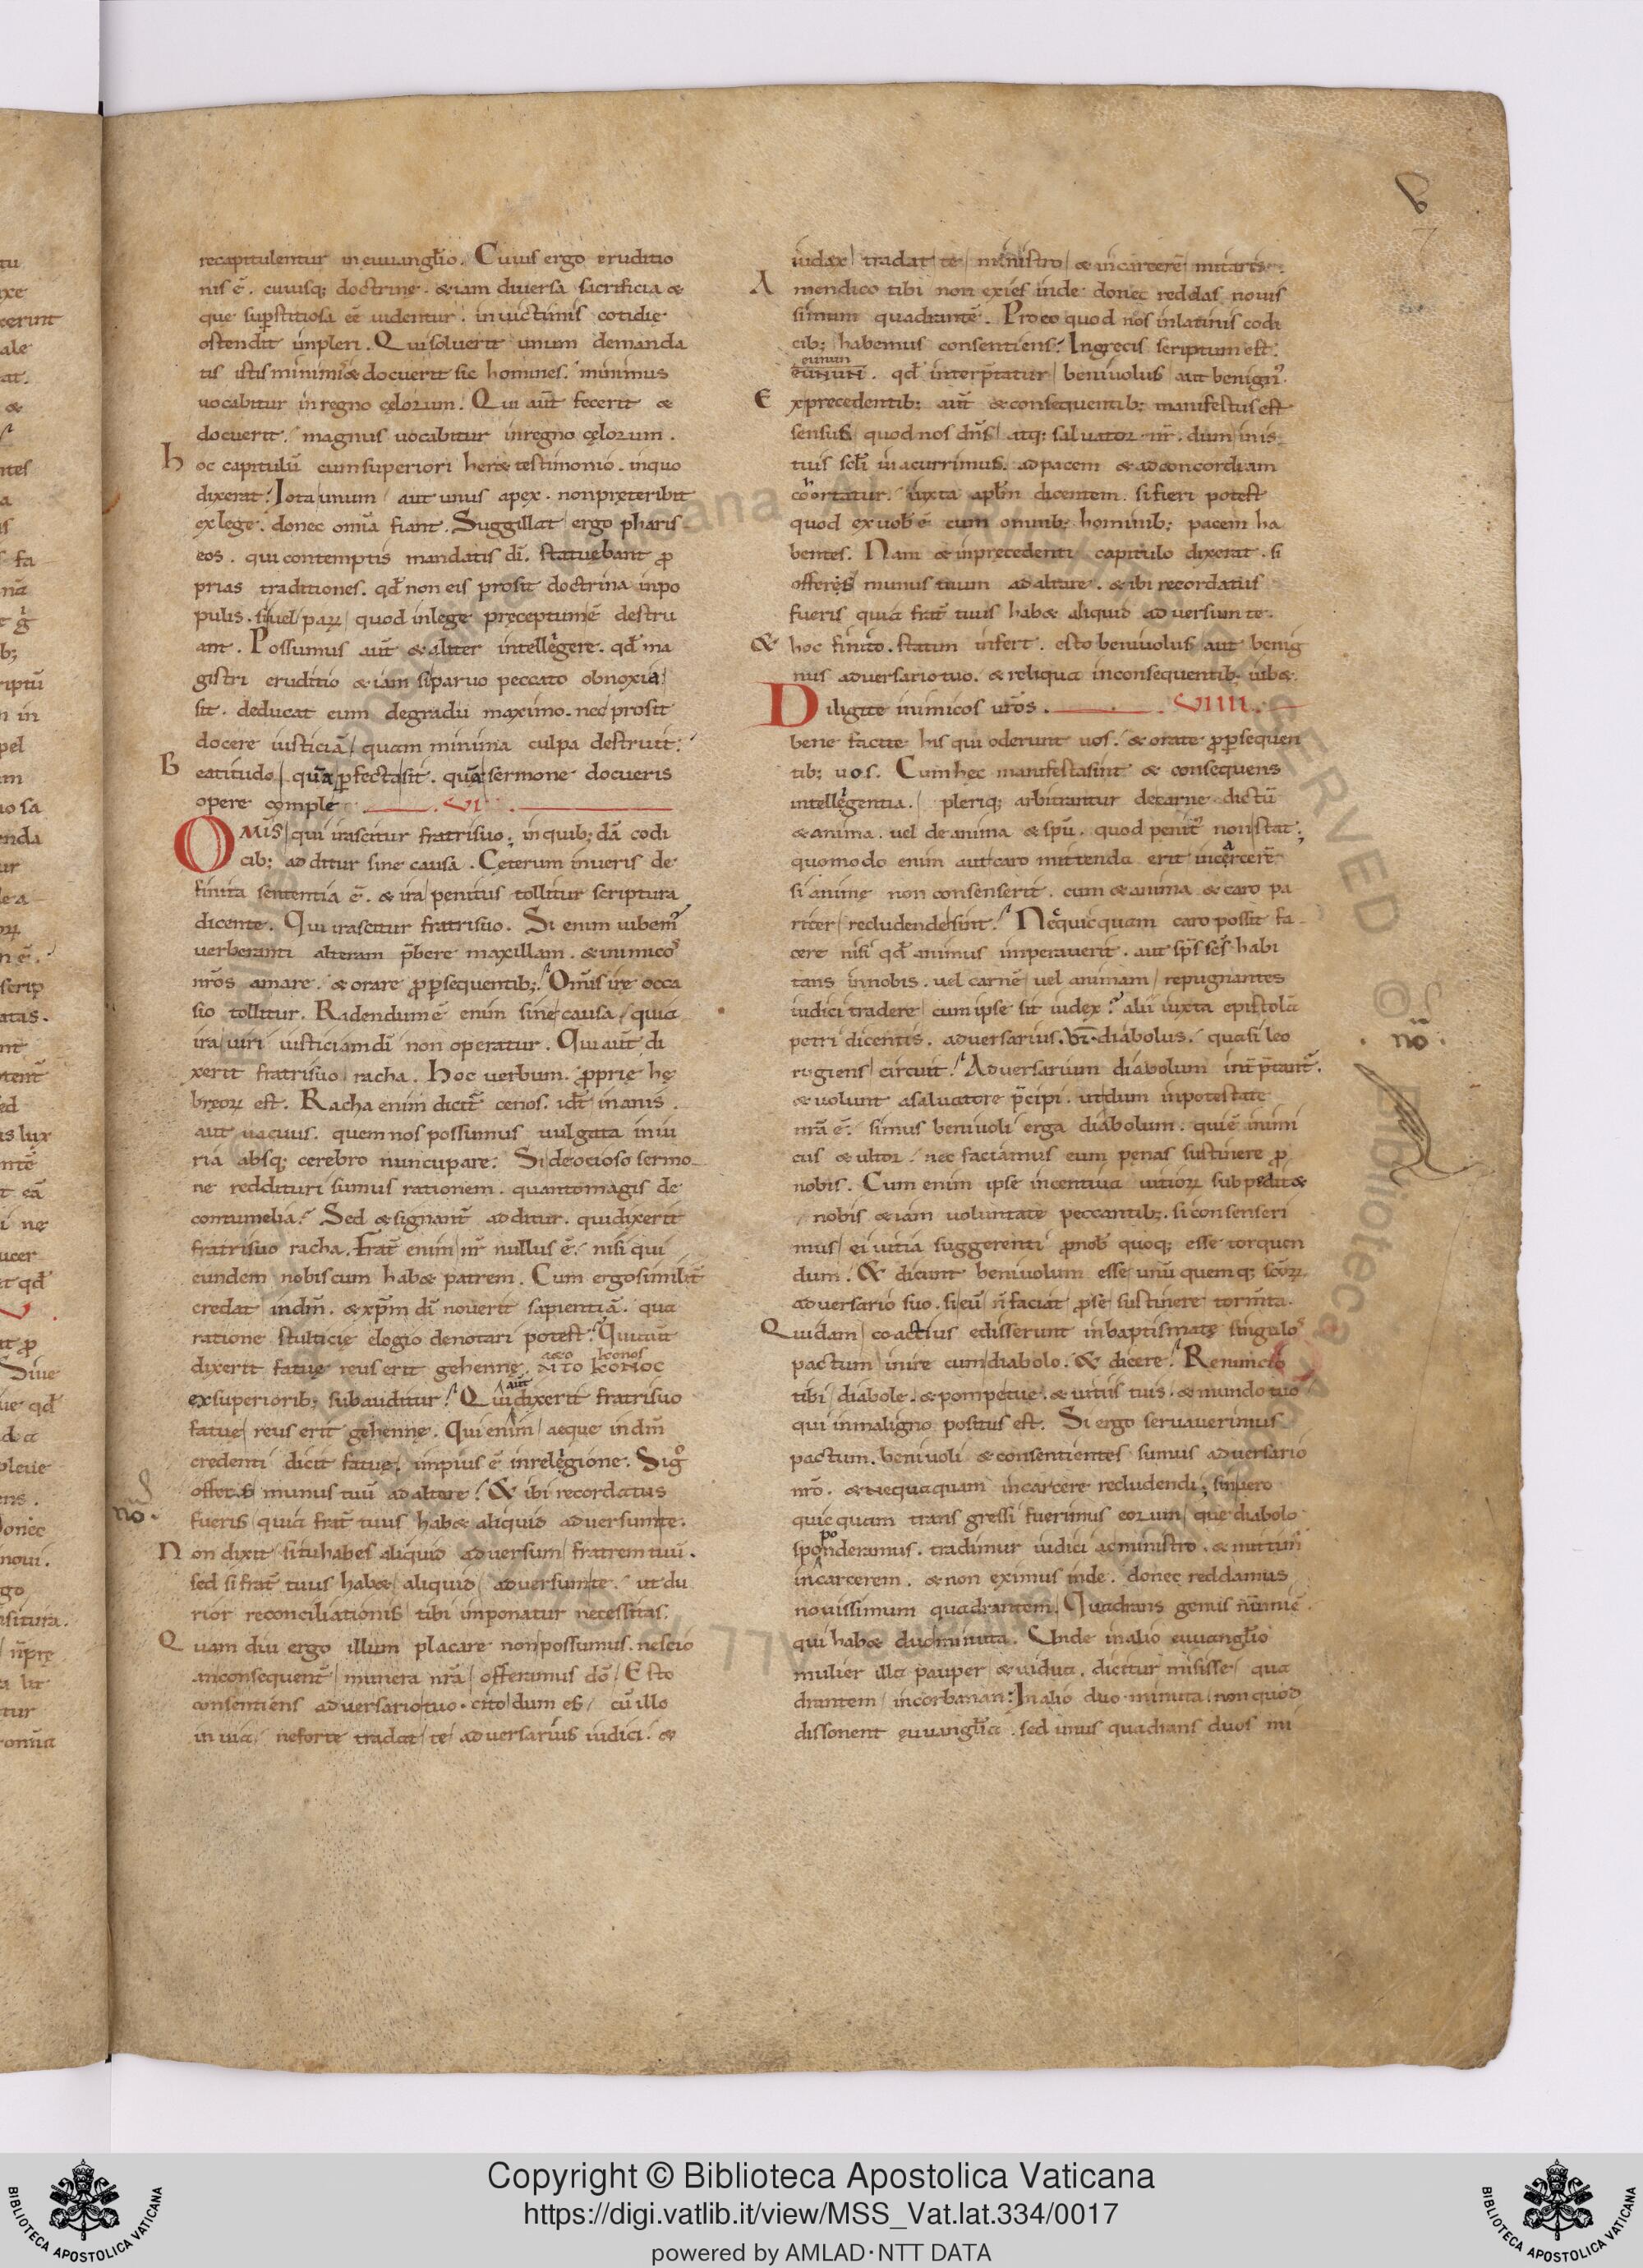 recapitulentur in euuangl̄io. Cuius ergo eruditio
nis ē. cuiusq; doctrinę. & iam diuersa sacrificia &
que sup̄stitiosa eē uidentur. in uictimis cotidie
ostendit impleri. Qui soluerit unum demanda
tis istis minimis & docuerit sic homines. minimus
uocabitur in regno cęlorum. Qui aut̄ fecerit &
docuerit. magnus uocabitur in regno cęlorum.
hoc capitulū cum superiori heret testimonio. in quo
dixerat. Iota unum aut unus apex. non pręteribit
ex lege. donec omīa fiant. Suggillat ergo pharis
eos. qui contemptis mandatis dī. statuebant ꝓ
prias traditiones. qd̄ non eis prosit doctrina in po
pulis. si uel parū quod in lege pręceptum ē destru
ant. Possumus aut̄ & aliter intelligere. qd̄ ma
gistri eruditio & iam si paruo peccato obnoxia
sit. deducat eum de gradu maximo. nec prosit
docere iusticiā quam minima culpa destruit.
Beatitudo quę ꝑfecta sit. quę sermone docueris
opere comple VI
OMIS qui irascitur fratri suo; in quib; dā codi
cib; additur sine causa. Ceterum in ueris de
finita sententia ē. & ira penitus tollitur scriptura
dicente. Qui irascitur fratri suo. Si enim iubem̄
uerberanti alteram p̄bere maxillam. & inimicos
nr̄os amare. & orare ꝓ ꝑsequentib; Omīs irę occa
sio tollitur. Radendum ē enim sine causa quia
ira uiri iusticiam dī non operatur. Qui aut̄ di
xerit fratri suo racha. Hoc uerbum ꝓprię hę
breoꝝ est. Racha enim dicit̄ cenos. id ē inanis
aut uacuus. quem nos possumus uulgata iniu
ria absq; cerebro nuncupare. Si de ocioso sermo
ne reddituri sumus rationem. quanto magis de
contumelia. Sed & signant̄ additur. qui dixerit
fratri suo racha. Frat̄ enim nr̄ nullus ē. nisi qui
eundem nobiscum hab& patrem. Cum ergo similit̄
credat in dm̄. & xp̄m dī nouerit sapientiā. qua
ratione stulticię elogio denotari potest. Qui aut̄
dixerit fatuę reus erit gehennę. ΑΠΟ ΚΟΙΝΟC
ex superiorib; subauditur. Qui aut̄ dixerit fratri suo
fatue reus erit gehennę. Qui enim aeque in dm̄
credenti dicit fatuę. impius ē in religione. Si g̊
offeres munus tuū ad altare. & ibi recordatus
fueris quia frat̄ tuus hab& aliquid aduersum te.
no.
Non dixit si tu habes aliquid aduersum fratrem tuū.
sed si frat̄ tuus hab& aliquid aduersum te. ut du
rior reconciliationis tibi imponatur necessitas.
Quam diu ergo illum placare non possumus. nescio
an consequent̄ munera nr̄a offeramus dō. Esto
consentiens aduersario tuo cito dum es cū illo
in uia. ne forte tradat te aduersarius iudici. &
8
7
iudex tradat te ministro & in carcerē mittaris.
Amen dico tibi non exies inde donec reddas nouis
simum quadrantē. Pro eo quod nos in latinis codi
cib; habemus consentiens. In grecis scriptum est.
eunun
qd̄ interp̄tatur beniuolus aut benign̄.
Ex precedentib; aut̄ & consequentib; manifestus est
sensus quod nos dn̄s atq; saluator nr̄. dum in is
tius scl̄i uia currimus. ad pacem & ad concordiam
cohortatur. iuxta apl̄m dicentem. si fieri potest
quod ex uob̄ ē cum omnib; hominib; pacem ha
bentes. Nam & in precedenti capitulo dixerat. si
offeres munus tuum ad altare. & ibi recordatus
fueris quia frat̄ tuus hab& aliquid aduersum te.
& hoc finito. statim infert. esto beniuolus aut benig
nus aduersario tuo. & reliqua in consequentib; iub&.
Diligite inimicos ur̄os. VIIII.
bene facite his qui oderunt uos. & orate ꝓ ꝑsequen
tib; uos. Cum hec manifesta sint & consequens
intelligentia. pleriq; arbitrantur de carne dictū
& anima. uel de anima & spū. quod penit̄ non stat;
quomodo enim aut caro mittenda erit in carcerē
si anime non consenserit. cum & anima & caro pa
riter recludende sint. Nec quicquam caro possit fa
cere nisi qd̄ animus imperauerit. aut sps̄ scs̄ habi
tans in nobis. uel carnē uel animam repugnantes
iudici tradere cum ipse sit iudex. alii iuxta epistolā
petri dicentis. aduersarius ur̄ diabolus. quasi leo
rugiens circuit. Aduersarium diabolum int̄p̄tant̄.
& uolunt a saluatore p̄cipi. ut dum in potestate
nr̄a ē. simus beniuoli erga diabolum. qui ē inimi
cus & ultor. nec faciamus eum penas sustinere ꝓ
nobis. Cum enim ipse incentiua uitioꝝ subpedit&
nobis & iam uoluntate peccantib;. si consenseri
mus ei uitia suggerenti ꝓ nob̄ quoq; esse torquen
dum. & dicunt beniuolum esse unū quemq; scōꝝ
aduersario suo. si eū n̄ faciat ꝓ se sustinere torm̄ta.
Quidam coactius edisserunt in baptismate singulos
pactum inire cum diabolo. & dicere. Renuncio
tibi diabole. & pompe tue. & uitiis tuis. & mundo tuo
qui in maligno positus est. Si ergo seruauerimus
pactum. beniuoli & consentientes sumus aduersario
nr̄o. & nequaquam in carcere recludendi; sin uero
quicquam transgressi fuerimus eorum que diabolo
spoponderamus. tradimur iudici ac ministro. & mittim̄
in carcerem. & non eximus inde. donec reddamus
nouissimum quadrantem. Quadrans genus nūmi ē.
qui hab& duo minuta. Unde in alio euuangl̄io
mulier illa pauper & uidua. dicitur misisse qua
drantem in corbanan. In alio duo minuta. non quod
dissonent euuangl̄ia. sed unus quadrans duos mi
no
Copyright © Biblioteca Apostolica Vaticana
https://digi.vatlib.it/view/MSS_Vat.lat.334/0017
powered by AMLAD·NTT DATA
BIBLIOTECA APOSTOLICA VATICANA
BIBLIOTECA APOSTOLICA VATICANA